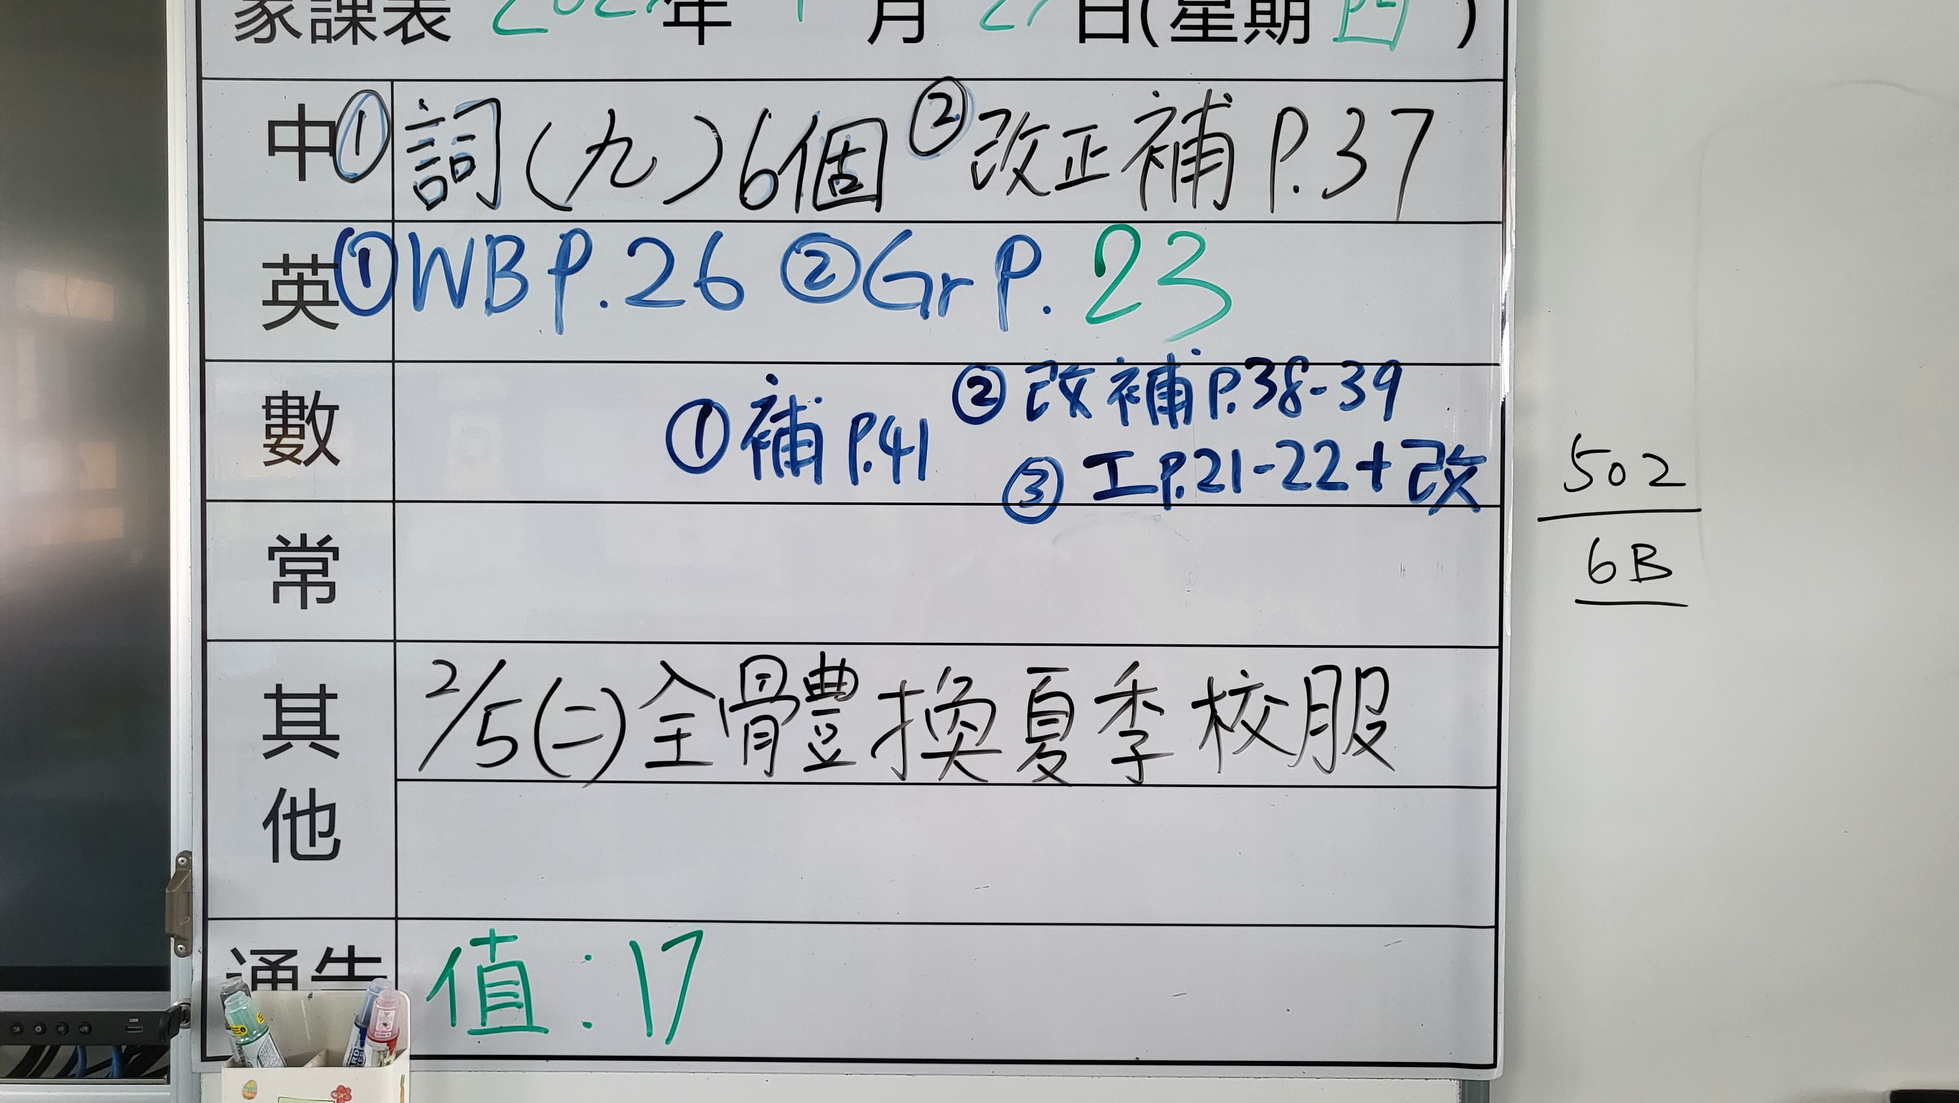 家課表 年 月 日(星期四)
中 ①詞(九)6個 ②改正補P.37
英 ①WB P.26 ②Gr P.23
數 ①補P.41 ②改補P.38-39
③工P.21-22+改
常
其他 2/5(二)全體換夏季校服
通告 值:17
502
6B